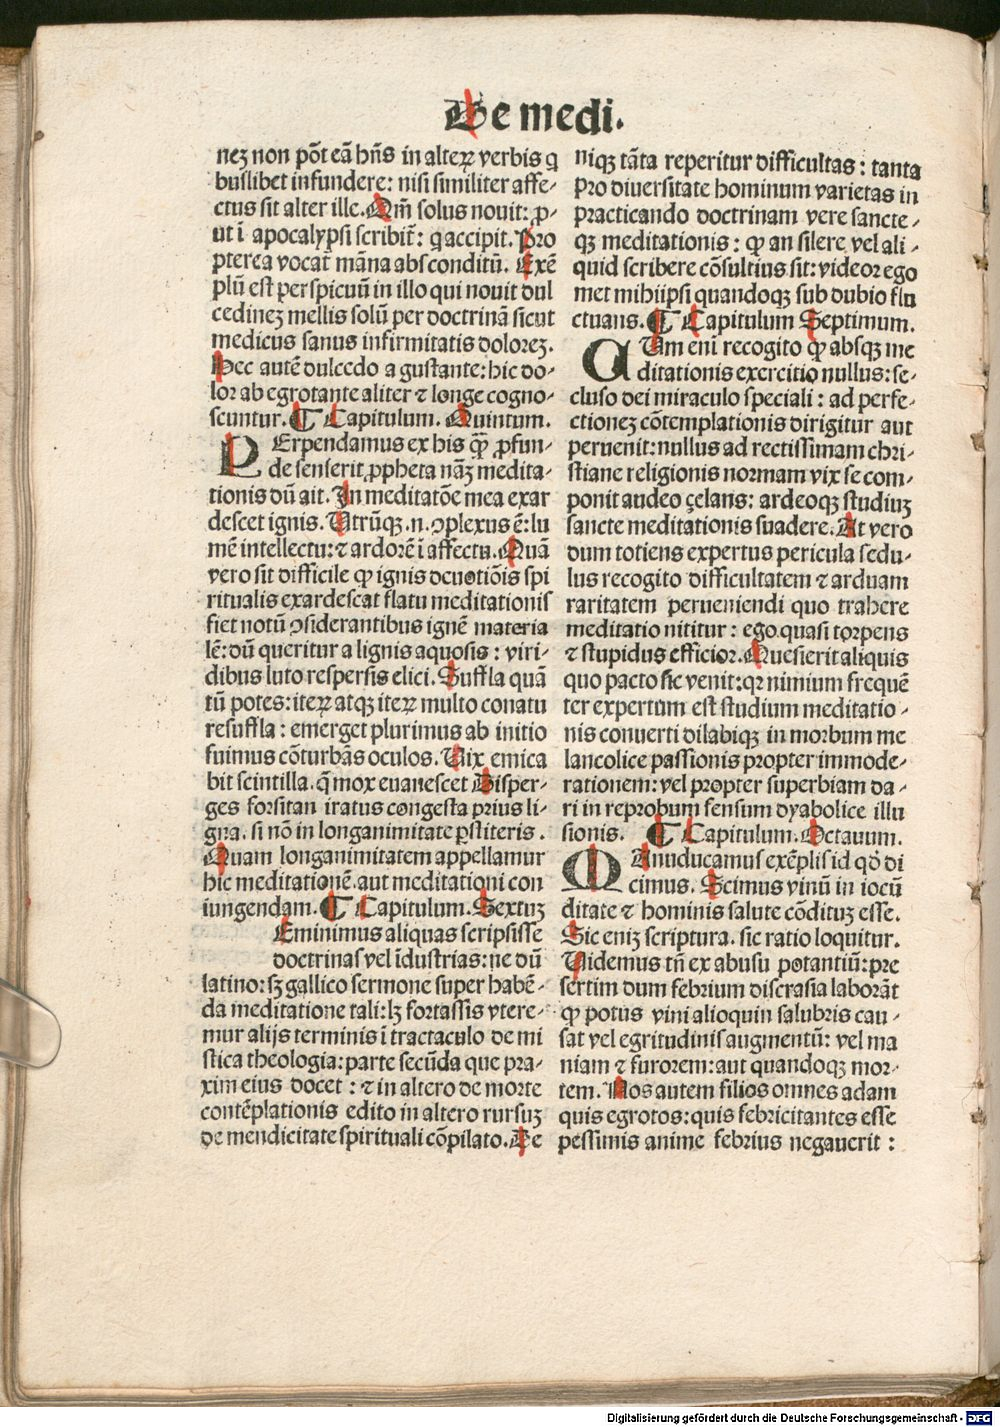 De medi.
nez non pōt eā hn̄s in alteꝝ verbis q
buslibet infundere: nisi similiter affe-
ctus sit alter ille. Qm̄ solus nouit: ꝓ-
ut ī apocalypsi scribit᷑: q accipit. Pro
pterea vocat᷑ māna absconditū. Exē
plū est perspicuū in illo qui nouit dul
cedinez mellis solū per doctrinā sicut
medicus sanus infirmitatis dolorez.
Nec autē dulcedo a gustante: hic do-
lor ab egrotante aliter ⁊ longe cogno-
scuntur. ¶ Capitulum. Quintum.
PErpendamus ex his qꝫ̄ ꝓfun-
de senserit ꝓpheta naꝫ medita-
tionis dū ait. In meditatōe mea exar
descet ignis. Utrūqꝫ .n. ꝯplexus ē: lu
mē intellectu: ⁊ ardorē ī affectu. Quā
vero sit difficile ꝙ ignis deuotiōis spi
ritualis exardescat flatu meditationis
fiet notū ꝯsiderantibus ignē materia
lē: dū queritur a lignis aquosis: viri-
dibus luto respersis elici. Suffla quā
tū potes: iteꝝ atqꝫ iteꝝ multo conatu
resuffla: emerget plurimus ab initio
fuimus cōturbās oculos. Uix emica
bit scintilla. q̄ mox euanescet Disper-
ges forsitan iratus congesta prius li-
gna. si nō in longanimitate ꝑstiteris.
Quam longanimitatem appellamur
hic meditationē. aut meditationi con
iungendam. ¶ Capitulum. Sextuꝫ
Eminimus aliquas scripsisse
doctrinas vel īdustrias: ne dū
latino: sꝫ gallico sermone super habē-
da meditatione tali: lꝫ fortassis vtere-
mur alijs terminis ī tractaculo de mi
stica theologia: parte secūda que pra-
xim eius docet: ⁊ in altero de morte
contēplationis edito in altero rursuꝫ
de mendicitate spirituali cōpilato. De
niqꝫ tāta reperitur difficultas: tanta
pro diuersitate hominum varietas in
practicando doctrinam vere sancte-
qꝫ meditationis: ꝙ an silere vel ali-
quid scribere cōsultius sit: videor ego
met mihiipsi quandoqꝫ sub dubio flu
ctuans. ¶ Capitulum Septimum.
CUm eni recogito ꝙ absqꝫ me
ditationis exercitio nullus: se-
cluso dei miraculo speciali: ad perfe-
ctionez cōtemplationis dirigitur aut
peruenit: nullus ad rectissimam chri-
stiane religionis normam vix se com-
ponit audeo çelans: ardeoqꝫ studiuꝫ
sancte meditationis suadere. At vero
dum totiens expertus pericula sedu-
lus recogito difficultatem ⁊ arduam
raritatem perueniendi quo trahere
meditatio nititur: ego quasi torpens
⁊ stupidus efficior. Quesierit aliquis
quo pacto sic venit: qꝛ nimium frequē
ter expertum est studium meditatio-
nis conuerti dilabiqꝫ in morbum me
lancolice passionis propter immode-
rationem: vel propter superbiam da-
ri in reprobum sensum dyabolice illu
sionis. ¶ Capitulum. Octauum.
MAnuducamus exēplis id qd̓ di
cimus. Scimus vinū in iocū
ditate ⁊ hominis salute cōdituꝫ esse.
Sic eniꝫ scriptura. sic ratio loquitur.
Uidemus tn̄ ex abusu potantiū: pre
sertim dum febrium discrasia laborāt
ꝙ potus vini alioquin salubris cau-
sat vel egritudinis augmentū: vel ma
niam ⁊ furorem: aut quandoqꝫ mor-
tem. Nos autem filios omnes adam
quis egrotos: quis febricitantes esse
pessimis anime febrius negauerit:
Digitalisierung gefördert durch die Deutsche Forschungsgemeinschaft - DFG